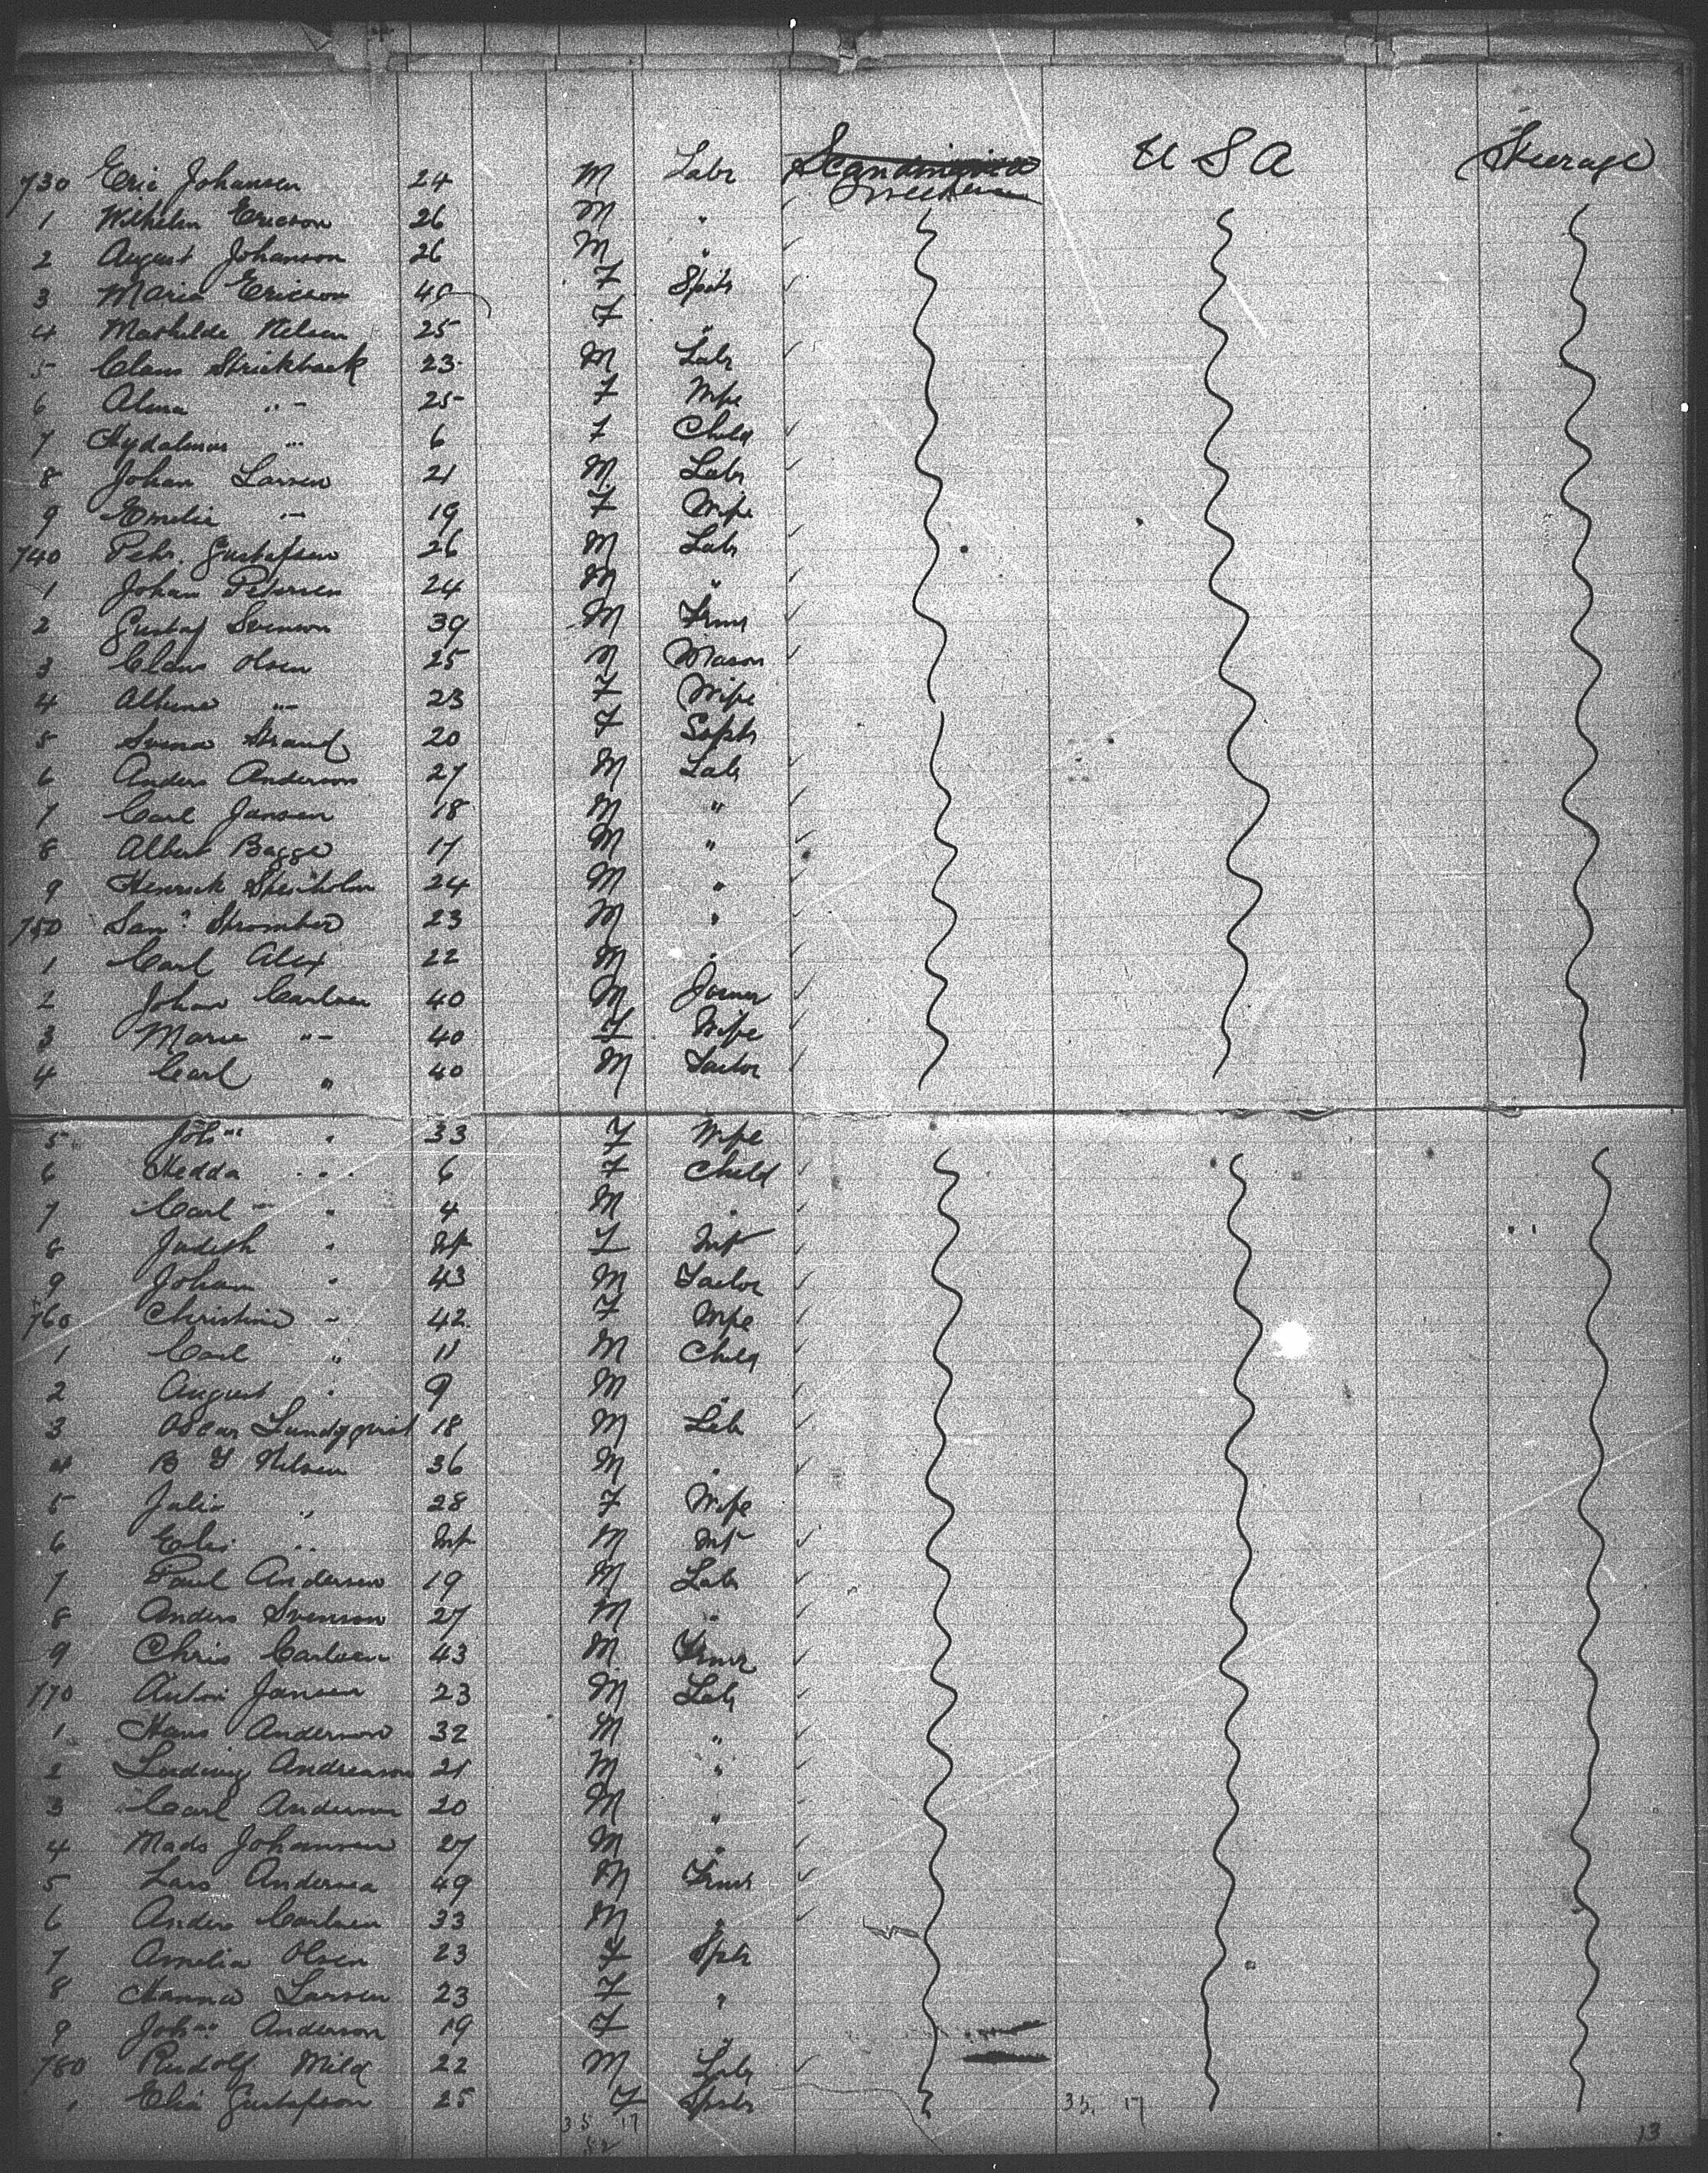 730 Eric Johansen 24 M Labr Scandinavia Sweden U S A Steerage
1 Wilhelm Ericson 26 M "
2 August Johanson 26 M "
3 Maria Ericson 40 F Spstr
4 Mathilde Nelsen 25 F "
5 Claus Strickback 23 M Labr
6 Alma " 25 F Wife
7 6 F Child
8 Johan Larsen 21 M Labr
9 Emelie " 19 F Wife
740 Pehr Gustafsen 26 M Labr
1 Johan Petersen 24 M "
2 Gustaf Svenson 39 M Frmr
3 Claus Olsen 25 M Mason
4 " 23 F Wife
5 Strand 20 F Spstr
6 Anders Anderson 27 M Labr
7 Carl Jansen 18 M "
8 Albert Bagge 17 M "
9 Henrick 24 M "
750 Saml 23 M "
1 Carl Alex 22 M "
2 Johan Carlsen 40 M Joiner
3 Marie " 40 F Wife
4 Carl " 40 M Tailor
5 Joh " 33 F Wife
6 Hedda " 6 F Child
7 Carl " 4 M "
8 Judith " Inf F Inft
9 Johan " 43 M Tailor
760 Christine " 42 F Wife
1 Carl " 11 M Child
2 August " 9 M "
3 Oscar Lundqvist 18 M Labr
4 B Nelsen 36 M "
5 Julia " 28 F Wife
6 " Inf M Inft
7 Paul Andersen 19 M Labr
8 Anders Svenson 27 M "
9 Chris Carlsen 43 M Frmr
770 Anton Jansen 23 M Labr
1 Hans Anderson 32 M "
2 Ludwig Andreason 21 M "
3 Carl Anderson 20 M "
4 Mads Johansen 27 M "
5 Lars Andersen 49 M Frmr
6 Anders Carlsen 33 M "
7 Amelia Olsen 23 F Spstr
8 Hanna Larsen 23 F "
9 Joh Anderson 19 F "
780 Rudolf Mild 22 M Labr
1 Gustafson 25 F Spstr
35 17 35 17
52 13